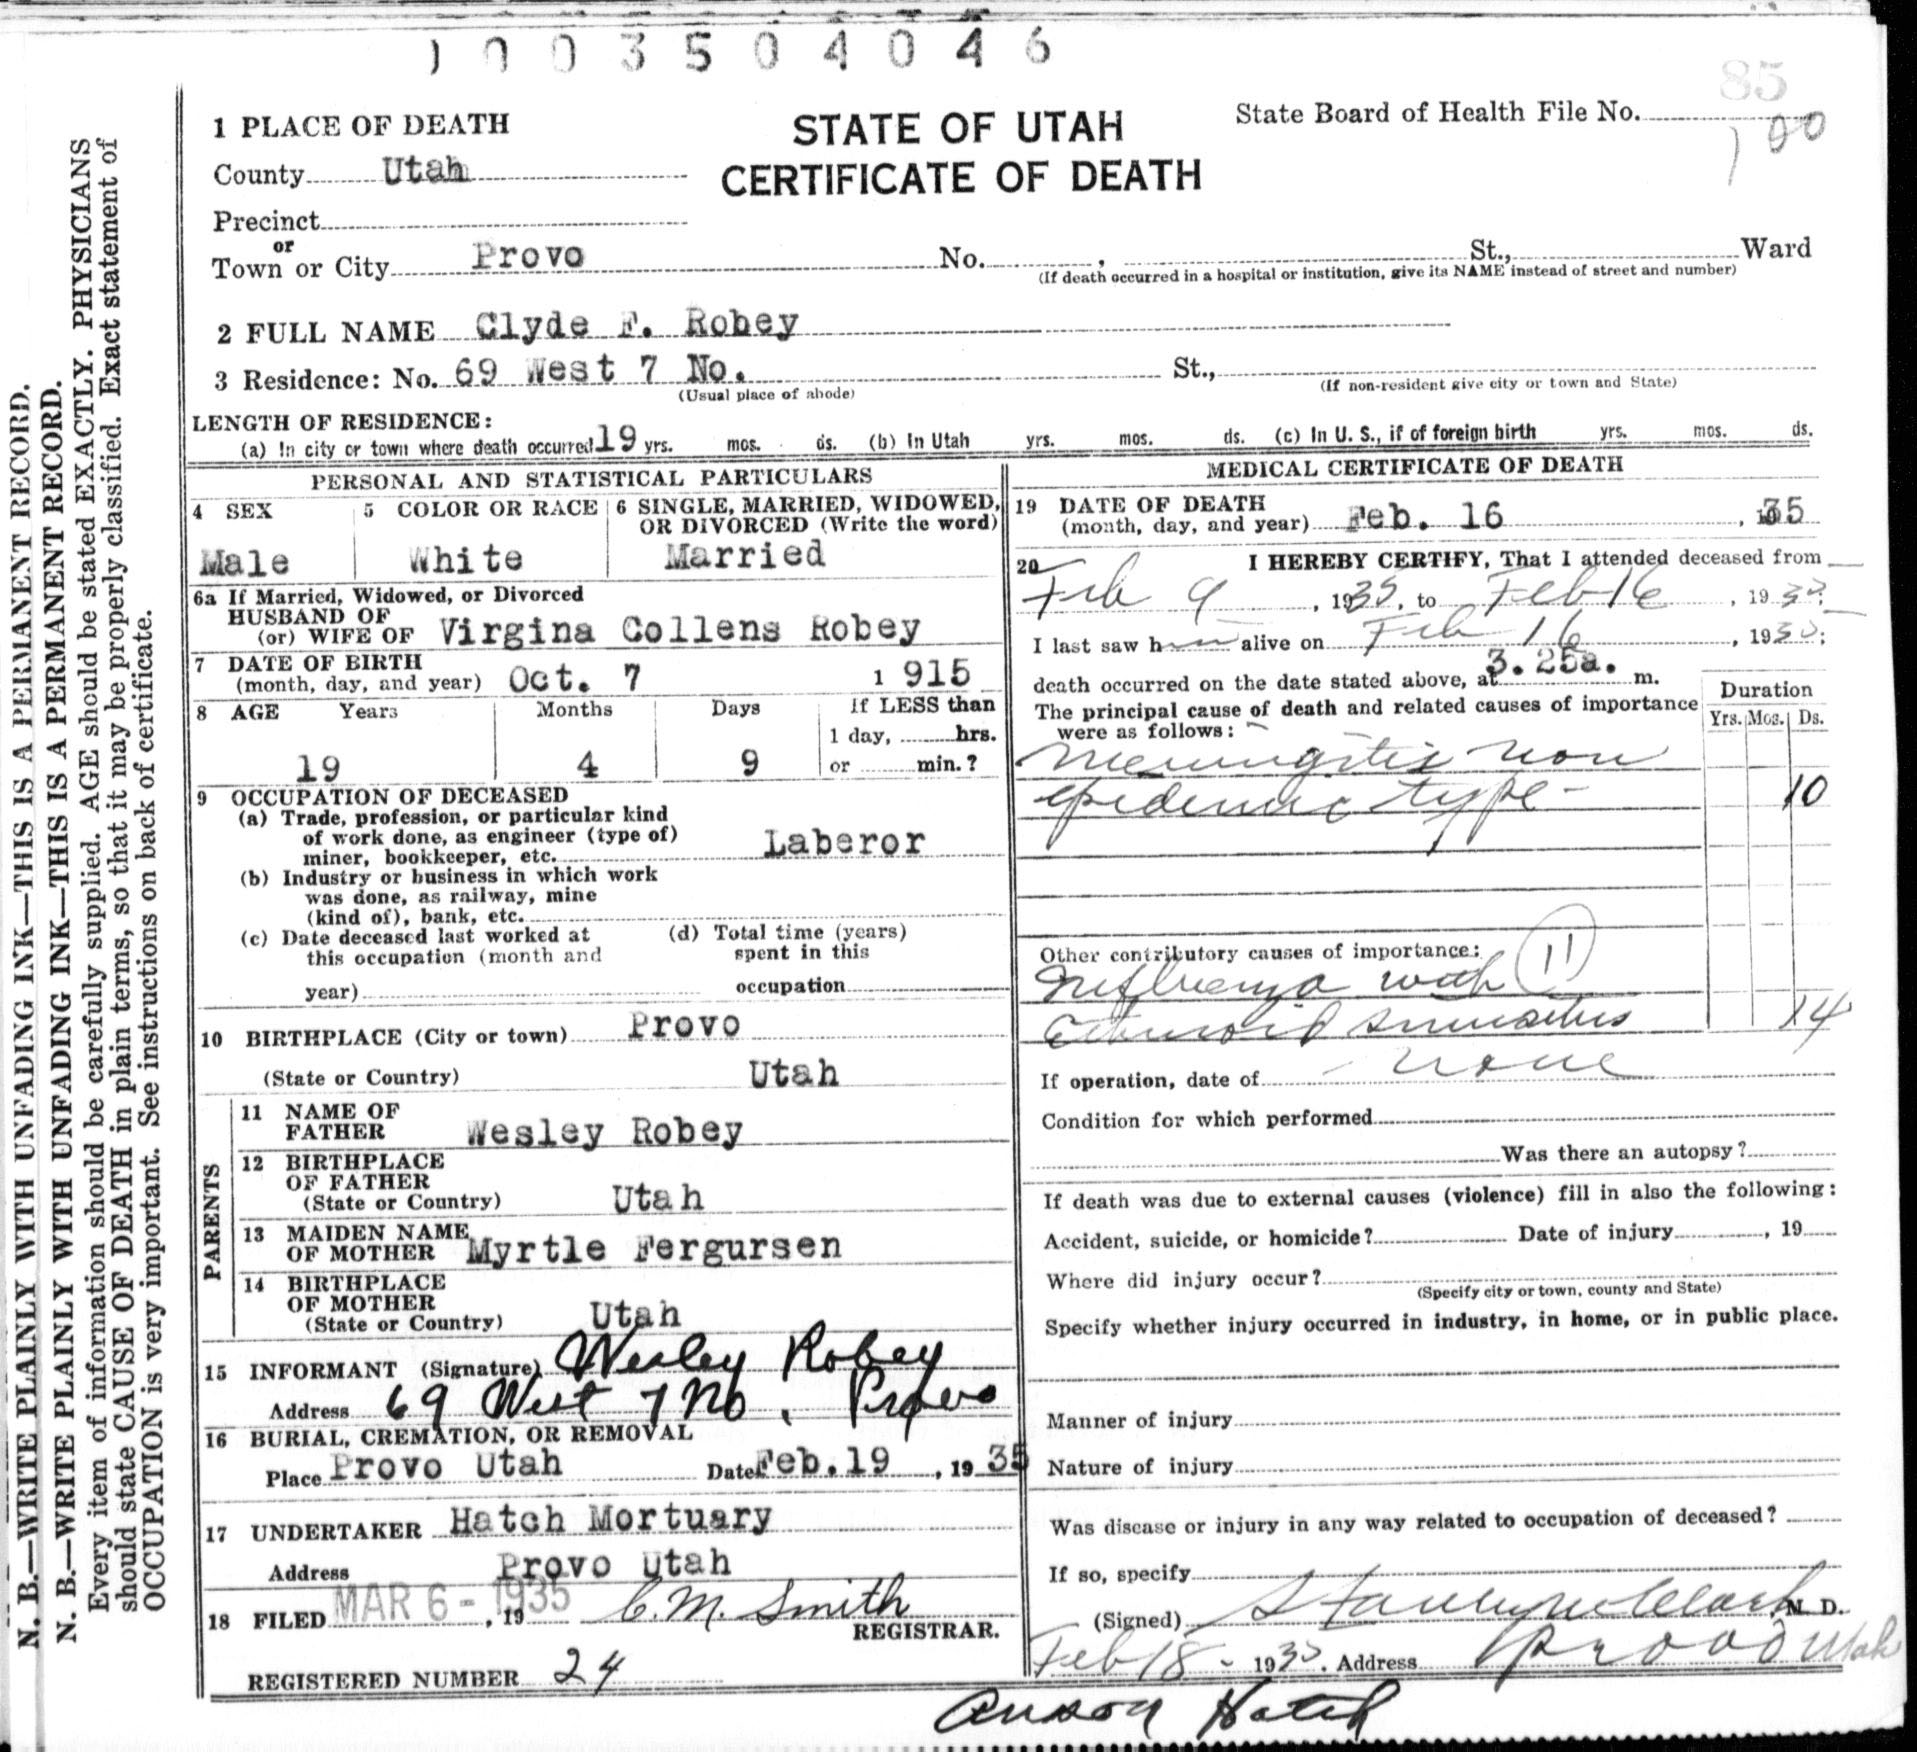 1003504046
85
1 PLACE OF DEATH
STATE OF UTAH
State Board of Health File No.
100
County Utah
CERTIFICATE OF DEATH
Precinct
or
Town or City Provo No. , St., Ward
(If death occurred in a hospital or institution, give its NAME instead of street and number)
2 FULL NAME Clyde F. Robey
3 Residence: No. 69 West 7 No. St.,
(Usual place of abode) (If non-resident give city or town and State)
LENGTH OF RESIDENCE:
(a) In city or town where death occurred 19 yrs. mos. ds. (b) In Utah yrs. mos. ds. (c) In U. S., if of foreign birth yrs. mos. ds.
PERSONAL AND STATISTICAL PARTICULARS
4 SEX 5 COLOR OR RACE 6 SINGLE, MARRIED, WIDOWED,
OR DIVORCED (Write the word)
Male White Married
6a If Married, Widowed, or Divorced
HUSBAND OF
(or) WIFE OF Virgina Collens Robey
7 DATE OF BIRTH
(month, day, and year) Oct. 7 1 915
8 AGE Years Months Days If LESS than
1 day, hrs.
19 4 9 or min.?
9 OCCUPATION OF DECEASED
(a) Trade, profession, or particular kind
of work done, as engineer (type of)
miner, bookkeeper, etc. Laberor
(b) Industry or business in which work
was done, as railway, mine
(kind of), bank, etc.
(c) Date deceased last worked at (d) Total time (years)
this occupation (month and spent in this
year) occupation
10 BIRTHPLACE (City or town) Provo
(State or Country) Utah
PARENTS
11 NAME OF
FATHER Wesley Robey
12 BIRTHPLACE
OF FATHER
(State or Country) Utah
13 MAIDEN NAME
OF MOTHER Myrtle Fergursen
14 BIRTHPLACE
OF MOTHER
(State or Country) Utah
15 INFORMANT (Signature) Wesley Robey
Address 69 West 7 No, Provo
16 BURIAL, CREMATION, OR REMOVAL
Place Provo Utah Date Feb.19, 19 35
17 UNDERTAKER Hatch Mortuary
Address Provo Utah
18 FILED MAR 6 - 1935, 19 C. M. Smith
REGISTRAR.
REGISTERED NUMBER 24
MEDICAL CERTIFICATE OF DEATH
19 DATE OF DEATH
(month, day, and year) Feb. 16, 35
20 I HEREBY CERTIFY, That I attended deceased from
Feb 9, 1935, to Feb 16, 1935;
I last saw him alive on Feb 16, 1935;
death occurred on the date stated above, at 3.25a. m.
The principal cause of death and related causes of importance
were as follows:
Duration
Yrs. Mos. Ds.
Meningitis non
epidemic type - 10
Other contributory causes of importance: 11
Influenza with
Ethmoid Sinusitus 14
If operation, date of none
Condition for which performed
Was there an autopsy?
If death was due to external causes (violence) fill in also the following:
Accident, suicide, or homicide? Date of injury , 19
Where did injury occur?
(Specify city or town, county and State)
Specify whether injury occurred in industry, in home, or in public place.
Manner of injury
Nature of injury
Was disease or injury in any way related to occupation of deceased?
If so, specify
(Signed) Stanley M Clark, M. D.
Feb 18 - 1935. Address Provo Utah
Anson Hatch
N. B.—WRITE PLAINLY WITH UNFADING INK—THIS IS A PERMANENT RECORD.
N. B.—WRITE PLAINLY WITH UNFADING INK—THIS IS A PERMANENT RECORD.
Every item of information should be carefully supplied. AGE should be stated EXACTLY. PHYSICIANS
should state CAUSE OF DEATH in plain terms, so that it may be properly classified. Exact statement of
OCCUPATION is very important. See instructions on back of certificate.